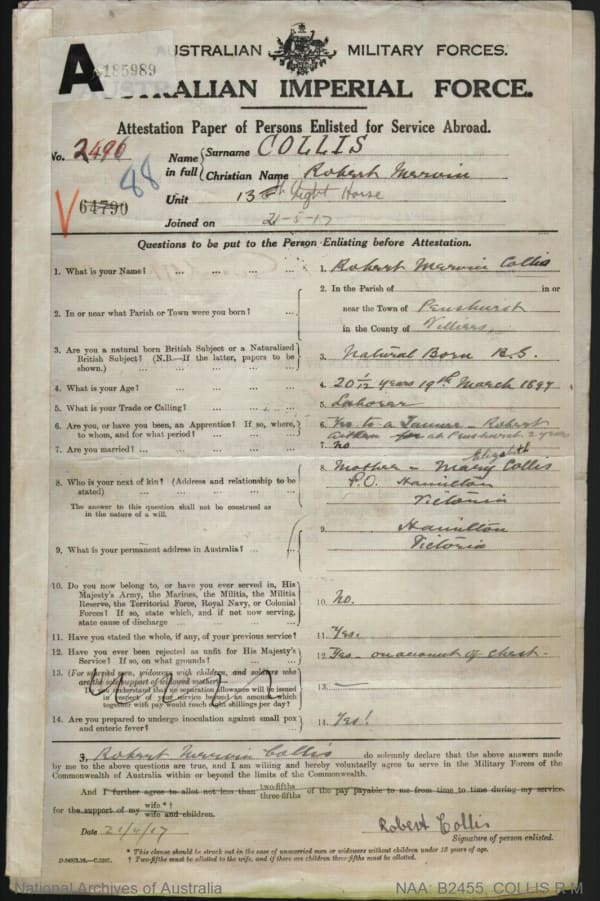 A AUSTRALIAN MILITARY FORCES.
A185989
AUSTRALIAN IMPERIAL FORCE.
Attestation Paper of Persons Enlisted for Service Abroad.
No. 2496
Name in full { Surname COLLIS
Christian Name Robert Mervin
88
64790
Unit 13th Light Horse
Joined on 21-5-17
Questions to be put to the Person Enlisting before Attestation.
1. What is your Name? ... ... ... ...
1. Robert Mervin Collis
2. In or near what Parish or Town were you born? ...
2. In the Parish of in or
near the Town of Penshurst
in the County of Villiers
3. Are you a natural born British Subject or a Naturalized
British Subject? (N.B.—If the latter, papers to be
shown.) ... ... ... ...
3. Natural Born B.S.
4. What is your Age? ... ... ... ...
4. 20 1/12 years 19th March 1897
5. What is your Trade or Calling? ... ... ...
5. Laborer
6. Are you, or have you been, an Apprentice? If so, where,
to whom, and for what period? ... ... ...
6. Yes to a Tanner - Robert
at Penshurst 2 years
7. Are you married? ... ... ... ...
7. No
8. Who is your next of kin? (Address and relationship to be
stated) ... ... ... ...
The answer to this question shall not be construed as
in the nature of a will.
8. Mother - Mary Elizabeth Collis
P.O. Hamilton
Victoria
9. What is your permanent address in Australia? ... ...
9. Hamilton
Victoria
10. Do you now belong to, or have you ever served in, His
Majesty's Army, the Marines, the Militia, the Militia
Reserve, the Territorial Force, Royal Navy, or Colonial
Forces? If so, state which, and if not now serving,
state cause of discharge ... ... ...
10. No.
11. Have you stated the whole, if any, of your previous service?
11. Yes.
12. Have you ever been rejected as unfit for His Majesty's
Service? If so, on what grounds? ... ...
12. Yes - on account of chest -
13. (For married men, widowers with children, and soldiers who
are the sole support of widowed mother)—
Do you understand that no separation allowance will be issued
in respect of your service beyond an amount which
together with pay would reach eight shillings per day?
13. —
14. Are you prepared to undergo inoculation against small pox
and enteric fever? ... ... ...
14. Yes!
I, Robert Mervin Collis do solemnly declare that the above answers made
by me to the above questions are true, and I am willing and hereby voluntarily agree to serve in the Military Forces of the
Commonwealth of Australia within or beyond the limits of the Commonwealth.
And I further agree to allot not less than two-fifths three-fifths of the pay payable to me from time to time during my service.
for the support of my wife.*†
wife and children.
Date 21/4/17
Robert Collis
Signature of person enlisted.
* This clause should be struck out in the case of unmarried men or widowers without children under 18 years of age.
† Two-fifths must be allotted to the wife, and if there are children three-fifths must be allotted.
National Archives of Australia
NAA: B2455, COLLIS R M